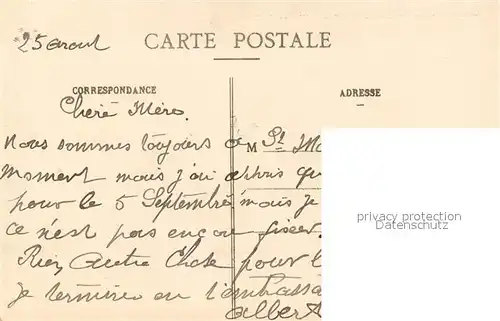 25 aout
CARTE POSTALE
CORRESPONDANCE
ADRESSE
Cheré Mère.
Nous sommes toujours a St Ma
M
moment mais j'ai appris qu
pour le 5 Septembre mais je
ce n'est pas encore fixer.
Rien autre Chose pour l
je termine en t'embrassa
albert
privacy protection
VDPD-AK.com